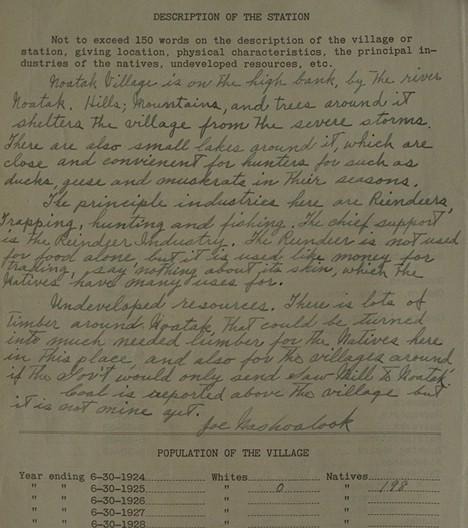 DESCRIPTION OF THE STATION
Not to exceed 150 words on the description of the village or
station, giving location, physical characteristics, the principal in-
dustries of the natives, undeveloped resources, etc.
Noatak Village is on the high bank, by the river
Noatak. Hills; Mountains, and trees around it
shelters the village from the severe storms.
There are also small lakes around it, which are
close and convienent for hunters for such as
ducks, geese and muskrats in their seasons.
The principle industries here are Reindeers,
Trapping, hunting and fishing. The chief support
is the Reindeer Industry. The Reindeer is not used
for food alone but it is used like money for
trading, say nothing about its skin, which the
Natives have many uses for.
Undeveloped resources. There is lots of
timber around Noatak, that could be turned
into much needed lumber for the Natives here
in this place, and also for the villages around,
if the Gov't would only send Saw Mill to Noatak
Coal is reported above the village but
it is not mine yet.
Joe
POPULATION OF THE VILLAGE
Year ending 6-30-1924 Whites Natives
" " 6-30-1925 " 0 " 198
" " 6-30-1926 " "
" " 6-30-1927 " "
" " 6-30-1928 " "